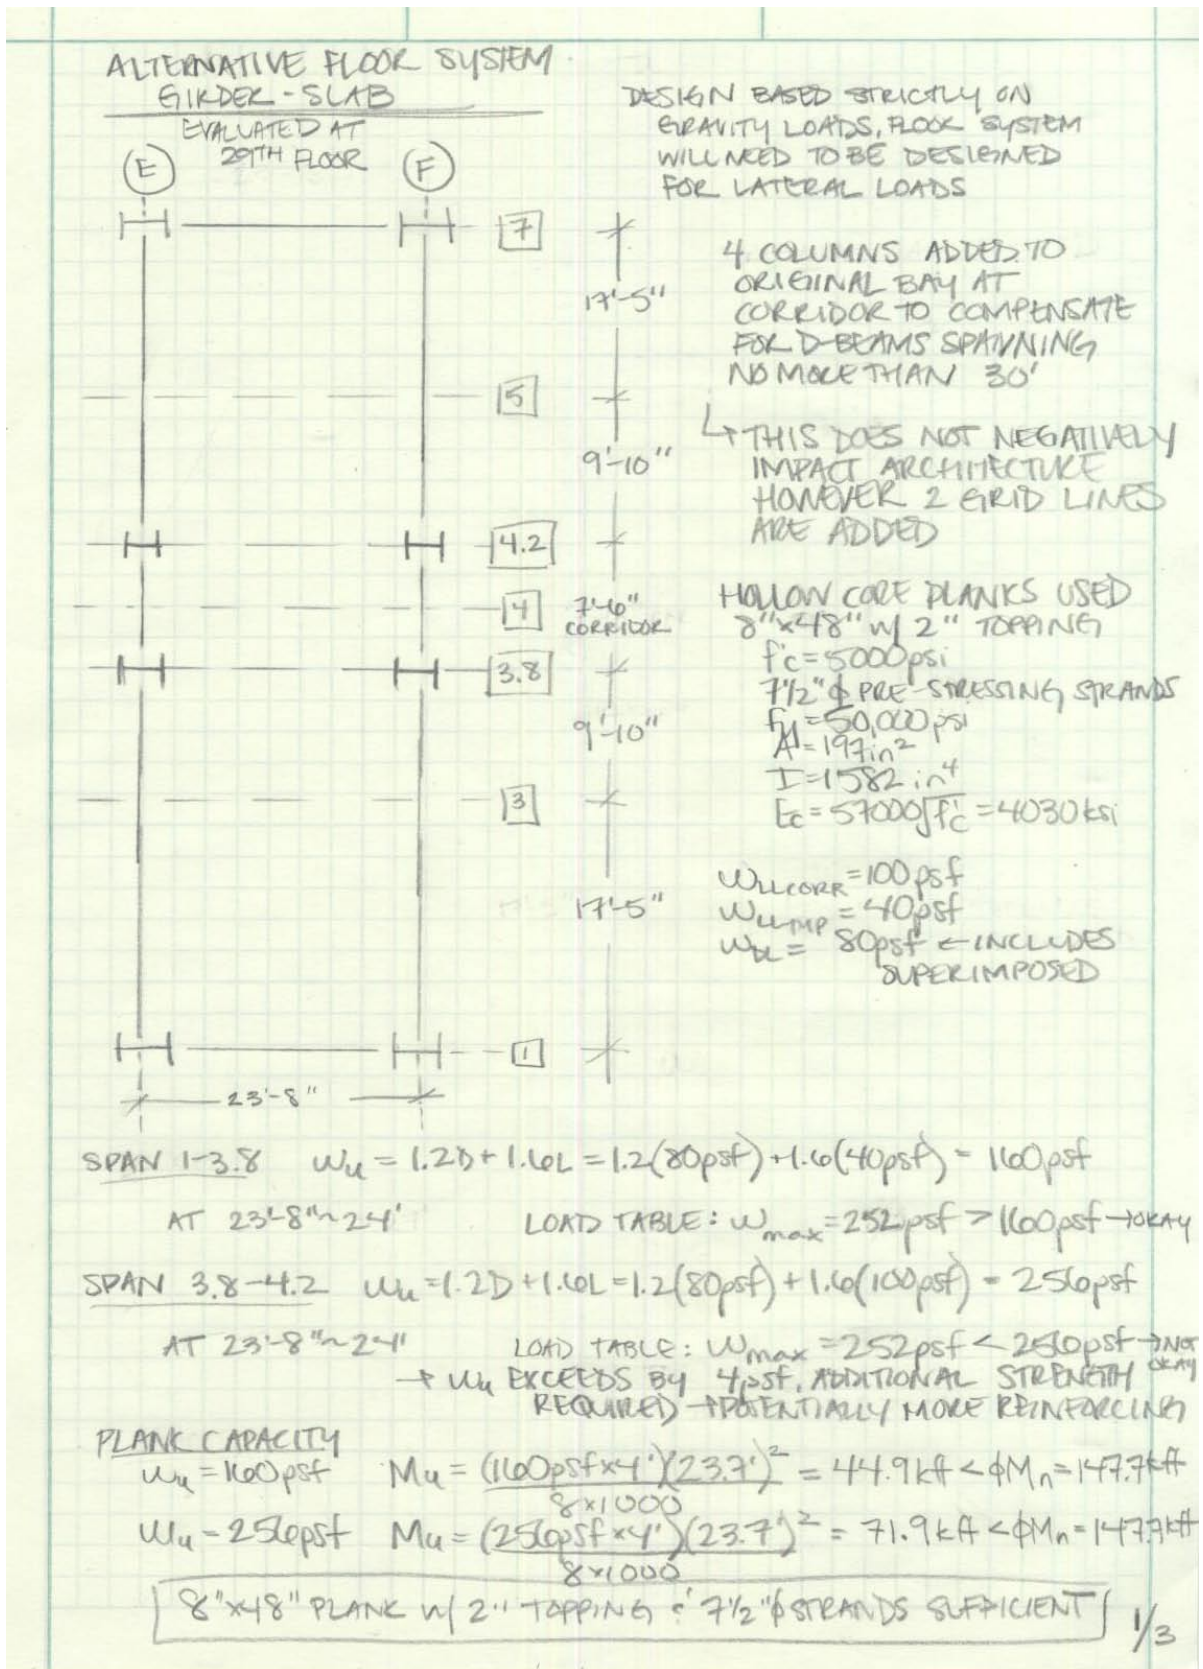 ALTERNATIVE FLOOR SYSTEM
GIRDER - SLAB
EVALUATED AT
29TH FLOOR
E
F
DESIGN BASED STRICTLY ON
GRAVITY LOADS, FLOOR SYSTEM
WILL NEED TO BE DESIGNED
FOR LATERAL LOADS
7
17'-5"
4 COLUMNS ADDED TO
ORIGINAL BAY AT
CORRIDOR TO COMPENSATE
FOR D-BEAMS SPANNING
NO MORE THAN 30'
5
9'-10"
↳ THIS DOES NOT NEGATIVELY
IMPACT ARCHITECTURE
HOWEVER 2 GRID LINES
ARE ADDED
4.2
4
7'-6"
CORRIDOR
3.8
9'-10"
3
17'-5"
1
23'-8"
HOLLOW CORE PLANKS USED
8"x48" w/ 2" TOPPING
f'c = 5000psi
7 1/2" ϕ PRE-STRESSING STRANDS
fy = 50,000psi
A = 197in²
I = 1582 in⁴
Ec = 57000√f'c = 4030ksi
WLLCORR = 100psf
= 40psf
WDL = 80psf ← INCLUDES
SUPERIMPOSED
SPAN 1-3.8 Wu = 1.2D + 1.6L = 1.2(80psf) + 1.6(40psf) = 160psf
AT 23'-8" ~ 24' LOAD TABLE: Wmax = 252psf > 160psf → OKAY
SPAN 3.8-4.2 Wu = 1.2D + 1.6L = 1.2(80psf) + 1.6(100psf) = 256psf
AT 23'-8" ~ 24' LOAD TABLE: Wmax = 252psf < 256psf → NOT OKAY
→ Wu EXCEEDS BY 4psf, ADDITIONAL STRENGTH
REQUIRED → POTENTIALLY MORE REINFORCING
PLANK CAPACITY
Wu = 160psf Mu = (160psf x 4')(23.7')² / 8x1000 = 44.9kft < ϕMn = 147.7kft
Wu = 256psf Mu = (256psf x 4')(23.7')² / 8x1000 = 71.9kft < ϕMn = 147.7kft
8"x48" PLANK w/ 2" TOPPING & 7 1/2"ϕ STRANDS SUFFICIENT
1/3